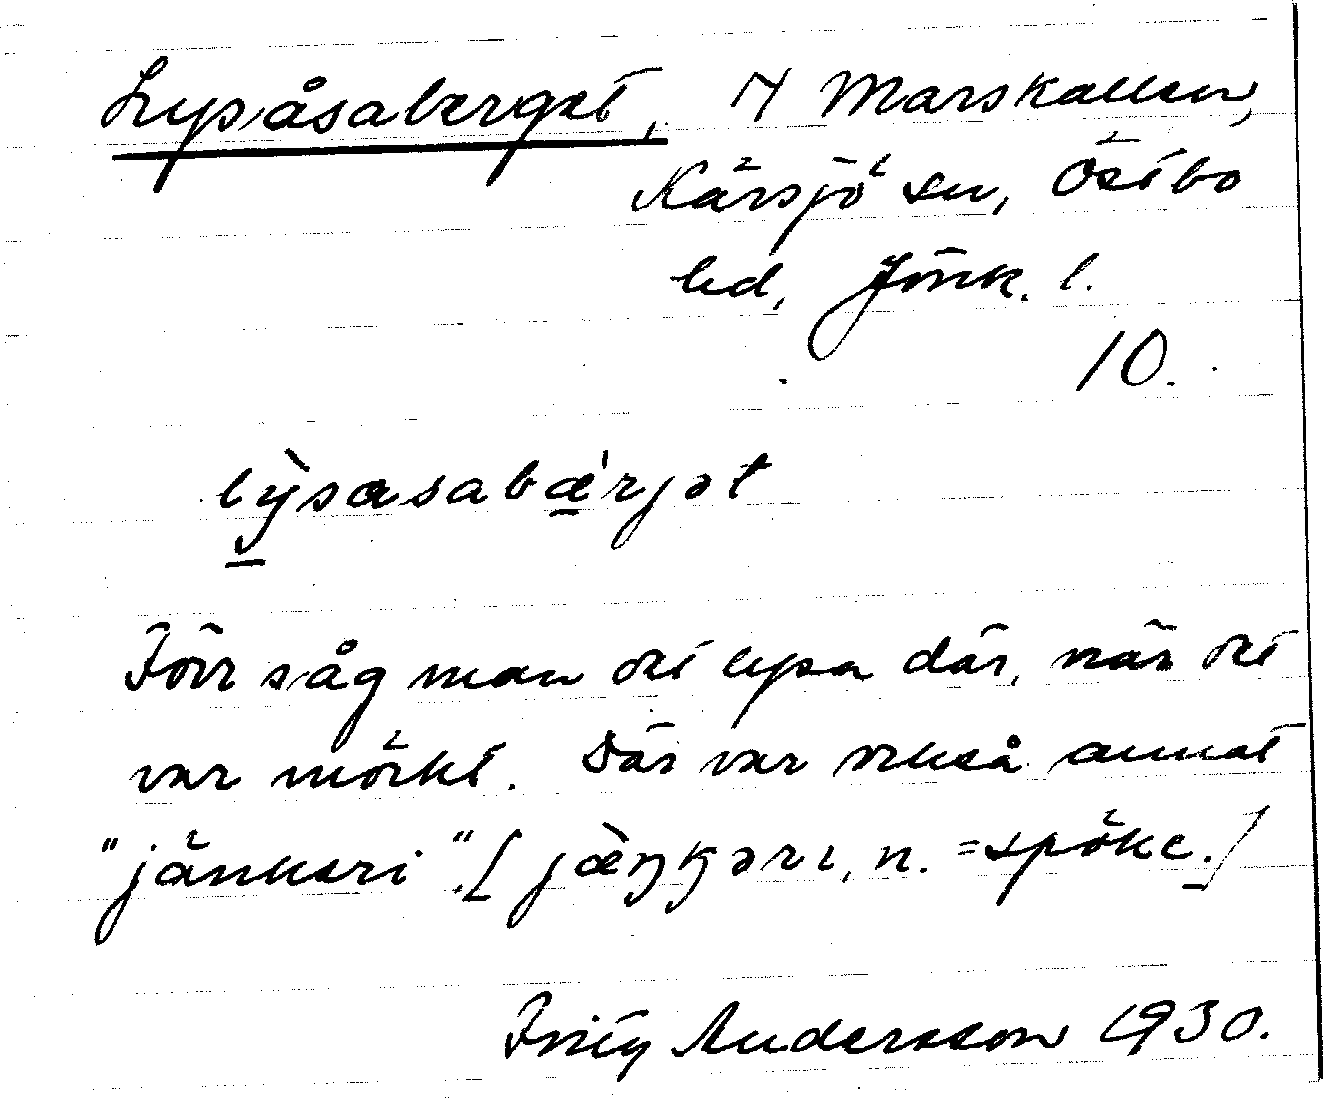 Lysåsaberget, 7 Marskallen,
Kärsjö sn, Östbo
hd, Jönk. l.
10.
lỳsasabæ'rjət
Förr såg man det lysa där, när det
var mörkt. Där var också annat
"jänkeri". [jæ̀ŋkərı, n. = spöke.]
Fritz Andersson 1930.